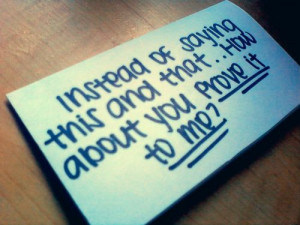 Instead of saying
this and that..How
about you prove it
to me?